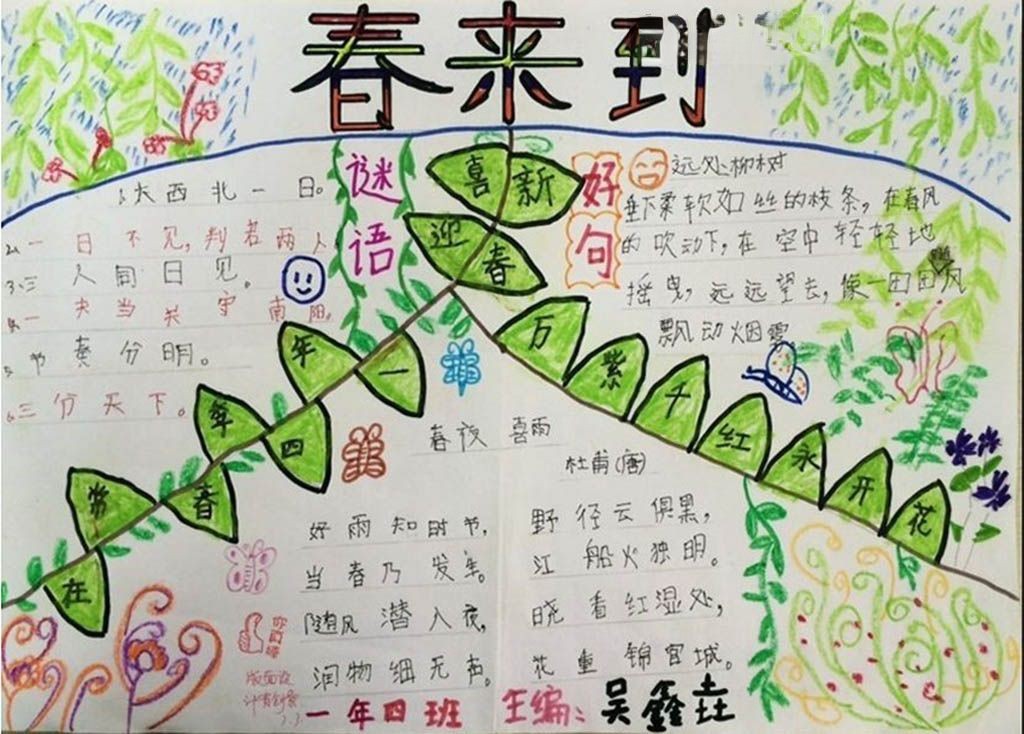 春来到
谜语
1、大西北一日。
2、一日不见,判若两人。
3、三人同日见。
4、一夫当关守南阳。
5、节奏分明。
6、三分天下。
喜迎新春
一年四季春常在
万紫千红永开花
好句
远处柳树
垂下柔软如丝的枝条,在春风
的吹动下,在空中轻轻地
摇曳,远远望去,像一团团风
飘动烟雾
春夜喜雨
杜甫(唐)
好雨知时节,
当春乃发生。
随风潜入夜,
润物细无声。
野径云俱黑,
江船火独明。
晓看红湿处,
花重锦官城。
版面设
计有创意
一年四班 主编:吴鑫垚